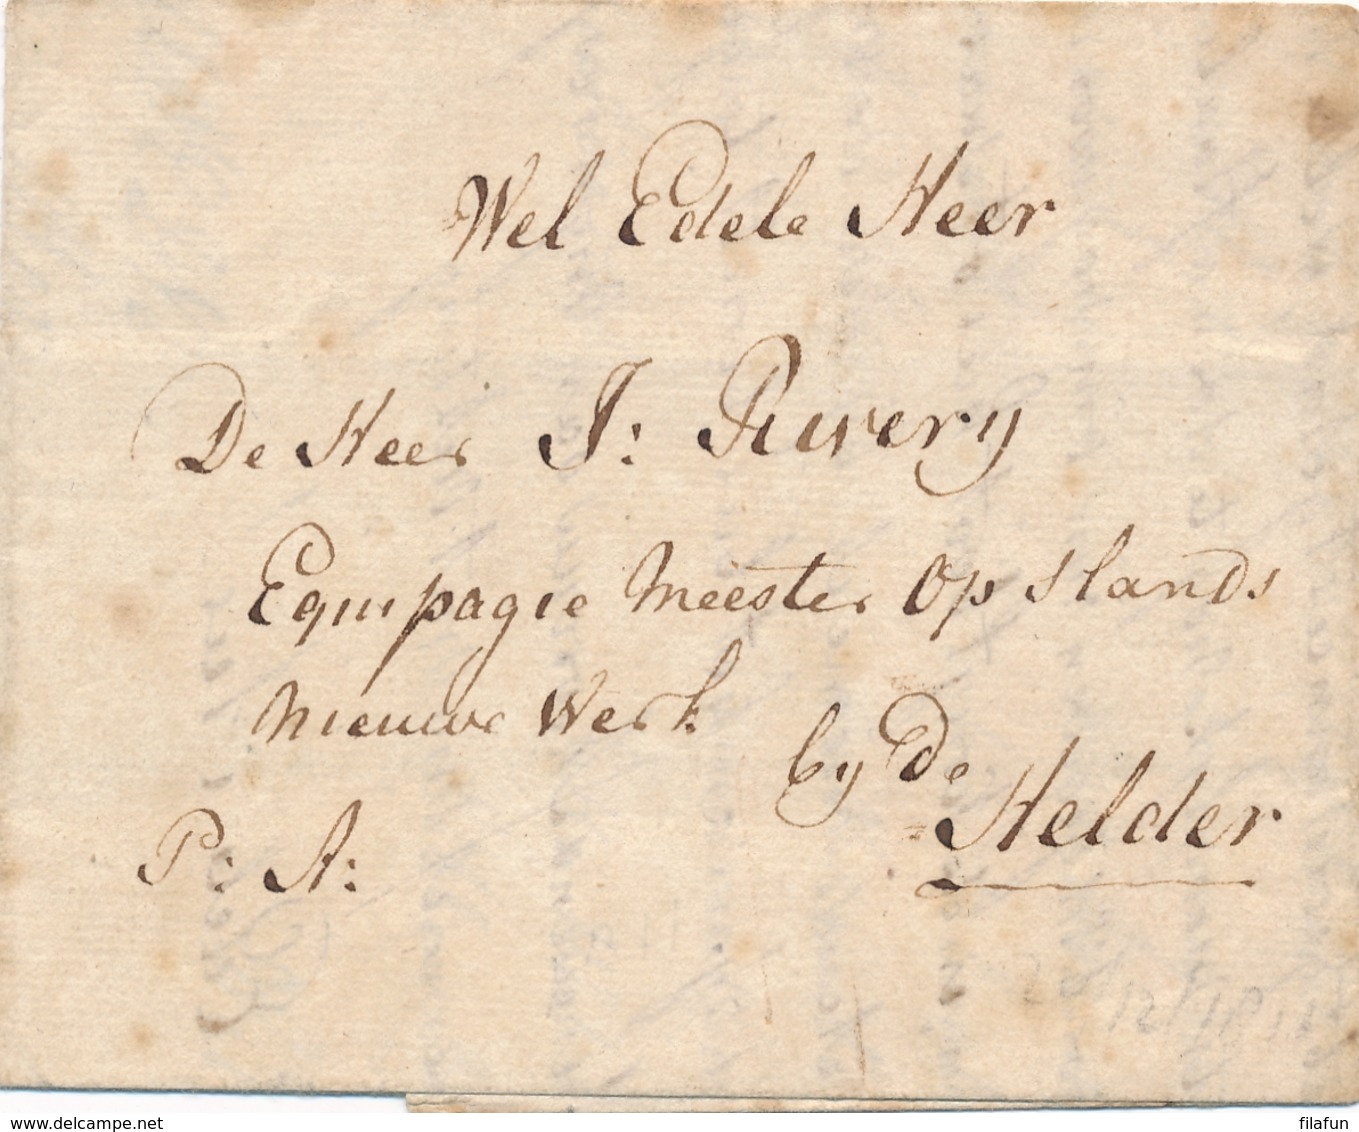 Wel Edele Heer
De Heer J: Rivery
Equipagie Meester Op s lands
Nieuwe Werk
by De
Helder
P: A:
www.delcampe.net
filafun